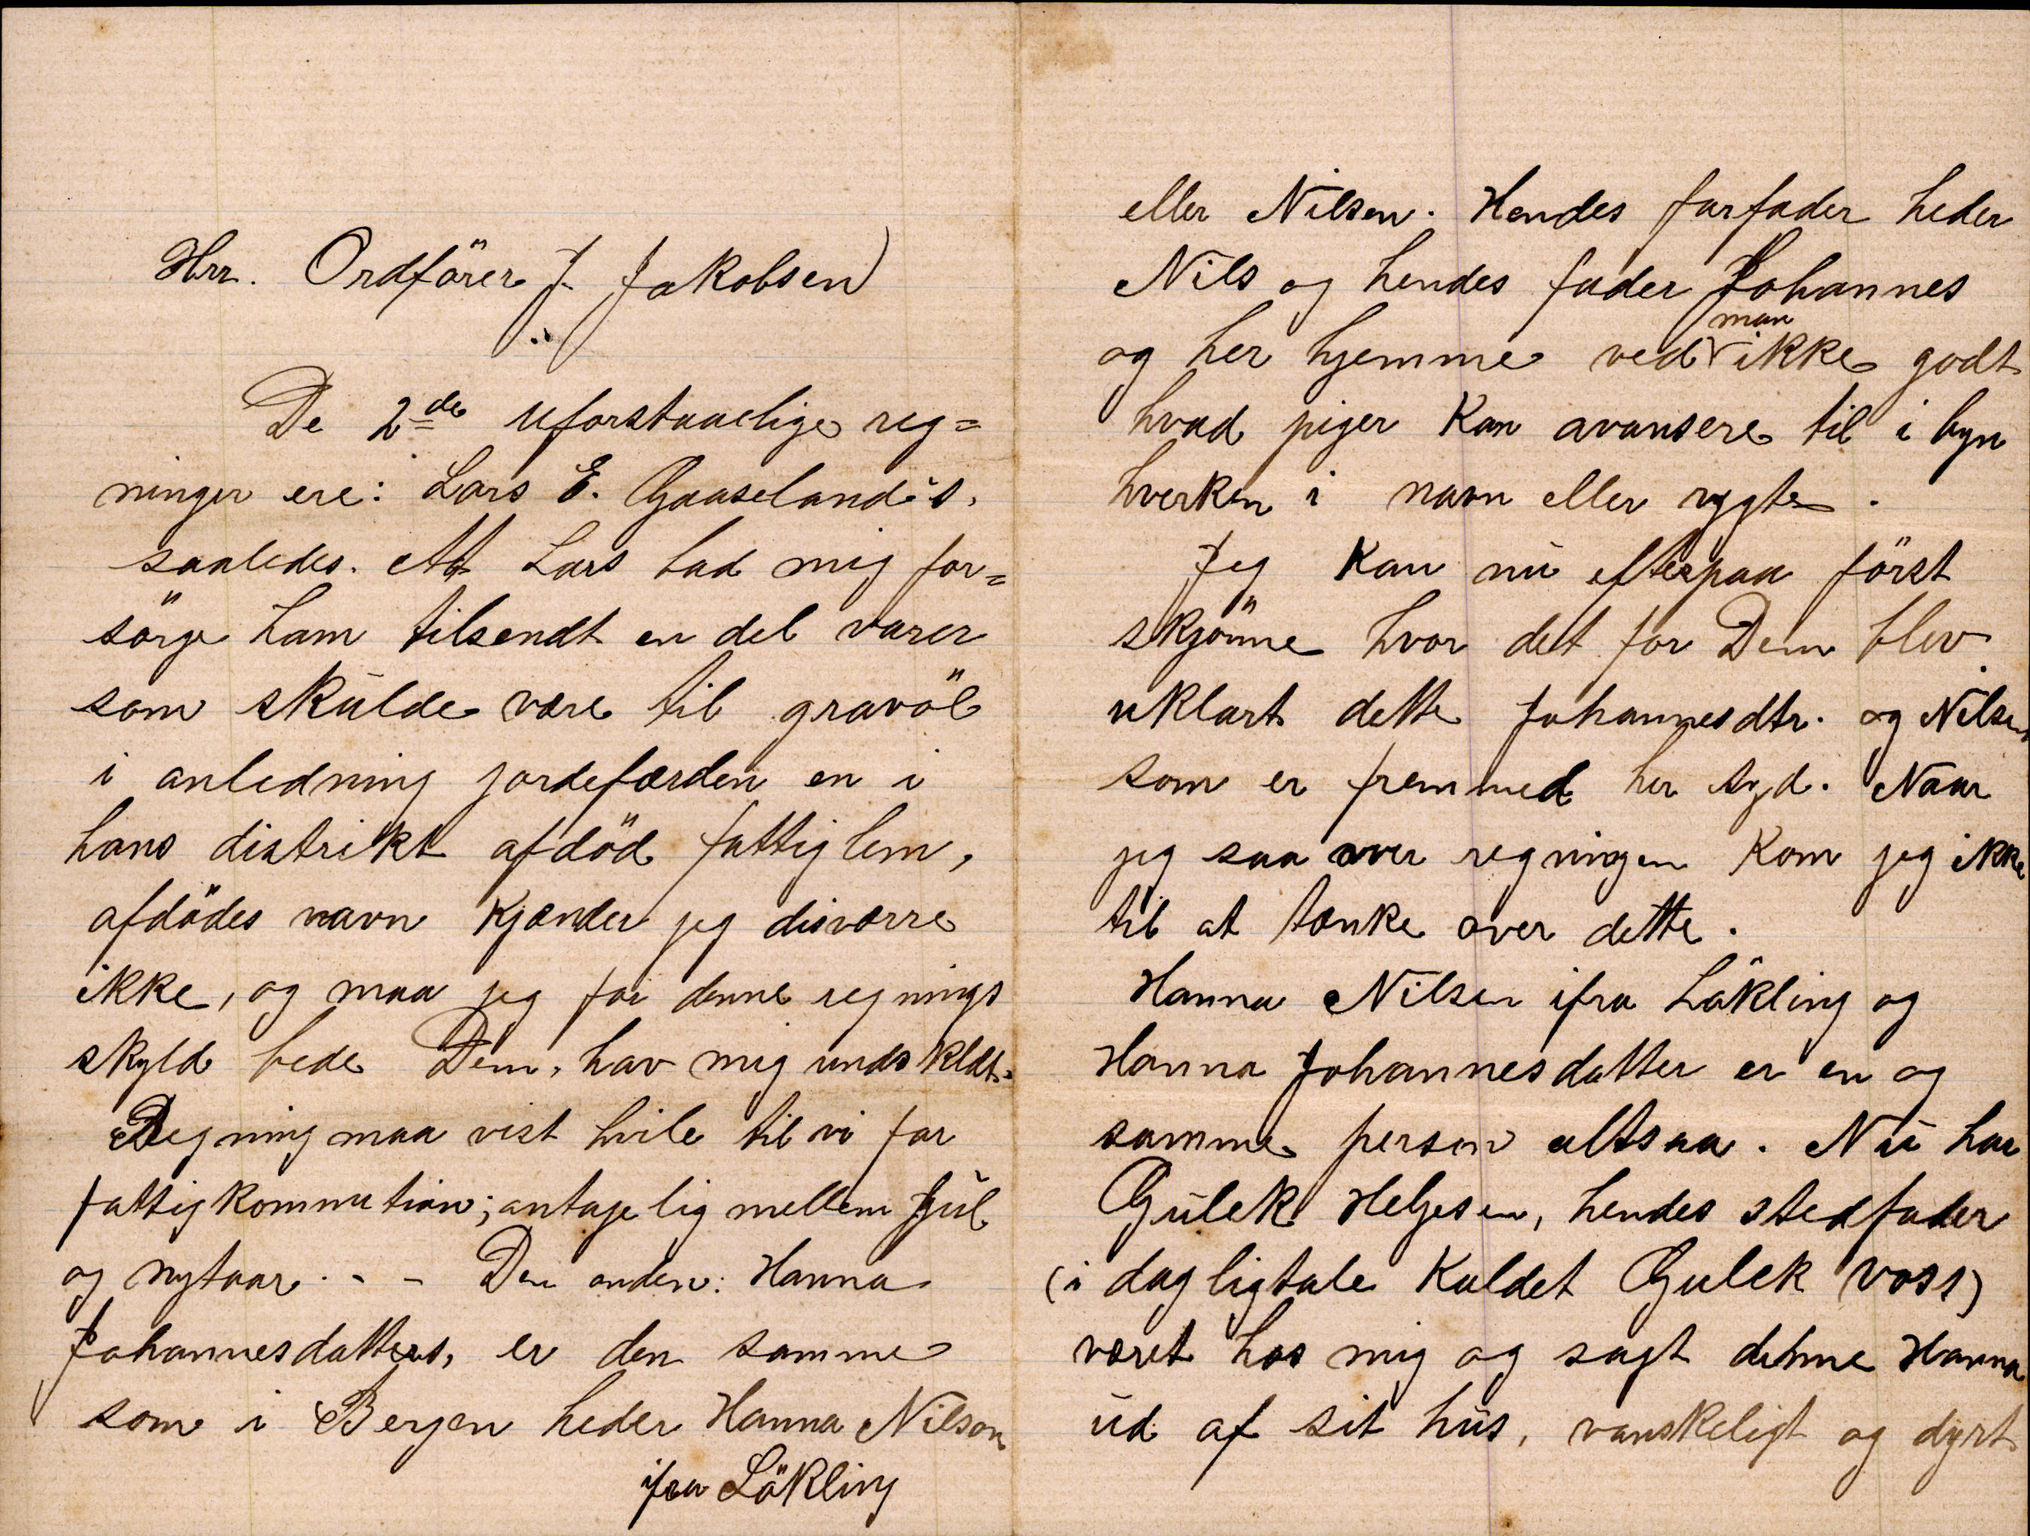 Hrr. Ordförer J. Jakobsen
De 2de uforstaaelige reg=
ninger ere: Lars E. Gaaseland's.
saaledes. At Lars bad mig for=
sörge ham tilsendt en del varer
som skulde være til gravöl
i anledning jordefærden en i
hans distrikt afdöd fattiglem,
afdödes navn kjænder jeg disværre
ikke, og maa jeg for denne regnings
skyld bede Dem, hav mig undskldt.
Regning maa vist hvile til vi far
fattigkommution; antagelig mellem Jul
og nytaar. - - Den anden: Hanna
Johannesdatters, er den samme
som i Bergen heder Hanna Nilson
ifra Lökling
eller Nilsen. Hendes farfader heder
Nils og hendes fader Johannes
og her hjemme ved man ikke godt
hvad piger kan avansere til i byn
hverken i navn eller rygte.
Jeg kan nu efterpaa först
skjönne hvor det for Dem blev
uklart dette Johannesdtr. og Nilsen
som er fremmed her syd. Naar
jeg saa over regningen kom jeg ikke
til at tænke over dette.
Hanna Nilsen ifra Lökling og
Hanna Johannesdatter er en og
samme person altsaa. Nu har
Gulek Helgesen, hendes stedfader
(i dagligtale kaldet Gulek voss)
været hos mig og sagt denne Hanna
ud af sit hus, vanskeligt og dyrt